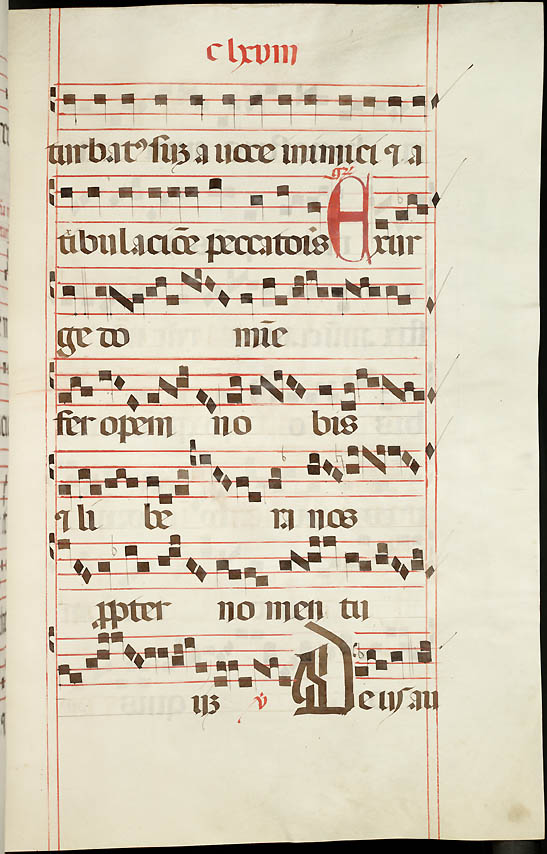 clxviii
turbat⁹ suꝫ a uoce inimici ⁊ a
gr̄
tibulaciōe peccatoris Exur
ge do mīe
fer opem no bis
⁊ li be ra nos
ꝓpter no men tu
uꝫ v̄ Deus au